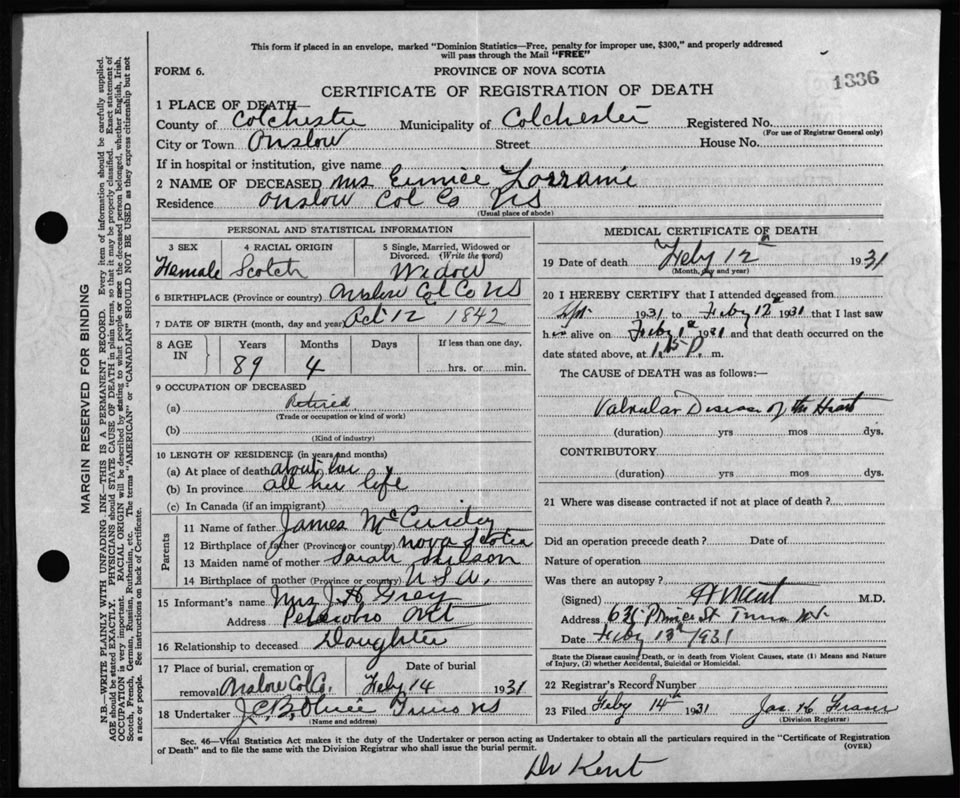 This form if placed in an envelope, marked "Dominion Statistics—Free, penalty for improper use, $300," and properly addressed
will pass through the Mail "FREE"
FORM 6.
PROVINCE OF NOVA SCOTIA
1336
CERTIFICATE OF REGISTRATION OF DEATH
1 PLACE OF DEATH—
County of Colchester Municipality of Colchester Registered No.
(For use of Registrar General only)
City or Town Onslow Street House No.
If in hospital or institution, give name
2 NAME OF DECEASED Mrs Eunice Lorraine
Residence Onslow Col Co NS
(Usual place of abode)
PERSONAL AND STATISTICAL INFORMATION
3 SEX 4 RACIAL ORIGIN 5 Single, Married, Widowed or Divorced. (Write the word)
Female Scotch Widow
6 BIRTHPLACE (Province or country) Onslow Col Co NS
7 DATE OF BIRTH (month, day and year) Oct 12 1842
8 AGE IN Years Months Days If less than one day,
89 4 hrs. or min.
9 OCCUPATION OF DECEASED
(a) Retired
(Trade or occupation or kind of work)
(b)
(Kind of industry)
10 LENGTH OF RESIDENCE (in years and months)
(a) At place of death about
(b) In province all her life
(c) In Canada (if an immigrant)
Parents
11 Name of father James McCurdy
12 Birthplace of father (Province or country) Nova Scotia
13 Maiden name of mother Sarah Wilson
14 Birthplace of mother (Province or country)
15 Informant's name Mrs J H Grey
Address Ont
16 Relationship to deceased Daughter
17 Place of burial, cremation or removal Onslow Col Co. Date of burial Feby 14 1931
18 Undertaker Truro NS
(Name and address)
MEDICAL CERTIFICATE OF DEATH
19 Date of death Feby 12th 1931
(Month, day and year)
20 I HEREBY CERTIFY that I attended deceased from
1931 to Feby 12th 1931 that I last saw
her alive on Feby 1931 and that death occurred on
date stated above, at 1.15 P. m.
The CAUSE of DEATH was as follows:—
Valvular Disease of the Heart
(duration) yrs mos dys.
CONTRIBUTORY
(duration) yrs mos dys.
21 Where was disease contracted if not at place of death?
Did an operation precede death? Date of
Nature of operation
Was there an autopsy?
(Signed) Kent M.D.
Address Prince St Truro NS
Date Feby 13th 1931
State the Disease causing Death, or in death from Violent Causes, state (1) Means and Nature
of Injury, (2) whether Accidental, Suicidal or Homicidal.
22 Registrar's Record Number
23 Filed Feby 14th 1931 Jas H Fraser
(Division Registrar)
Sec. 46—Vital Statistics Act makes it the duty of the Undertaker or person acting as Undertaker to obtain all the particulars required in the "Certificate of Registration
of Death" and to file the same with the Division Registrar who shall issue the burial permit.
(OVER)
Dr Kent
MARGIN RESERVED FOR BINDING
N.B.—WRITE PLAINLY WITH UNFADING INK—THIS IS A PERMANENT RECORD. Every item of information should be carefully supplied.
AGE should be stated EXACTLY. PHYSICIANS should STATE CAUSE OF DEATH in plain terms, so that it may be properly classified. Exact statement of
OCCUPATION is very important. RACIAL ORIGIN will be described by stating to what people or race the deceased person belonged, whether English, Irish,
Scotch, French, German, Russian, Ruthenian, etc. The terms "AMERICAN" or "CANADIAN" SHOULD NOT BE USED as they express citizenship but not
a race or people. See instructions on back of Certificate.